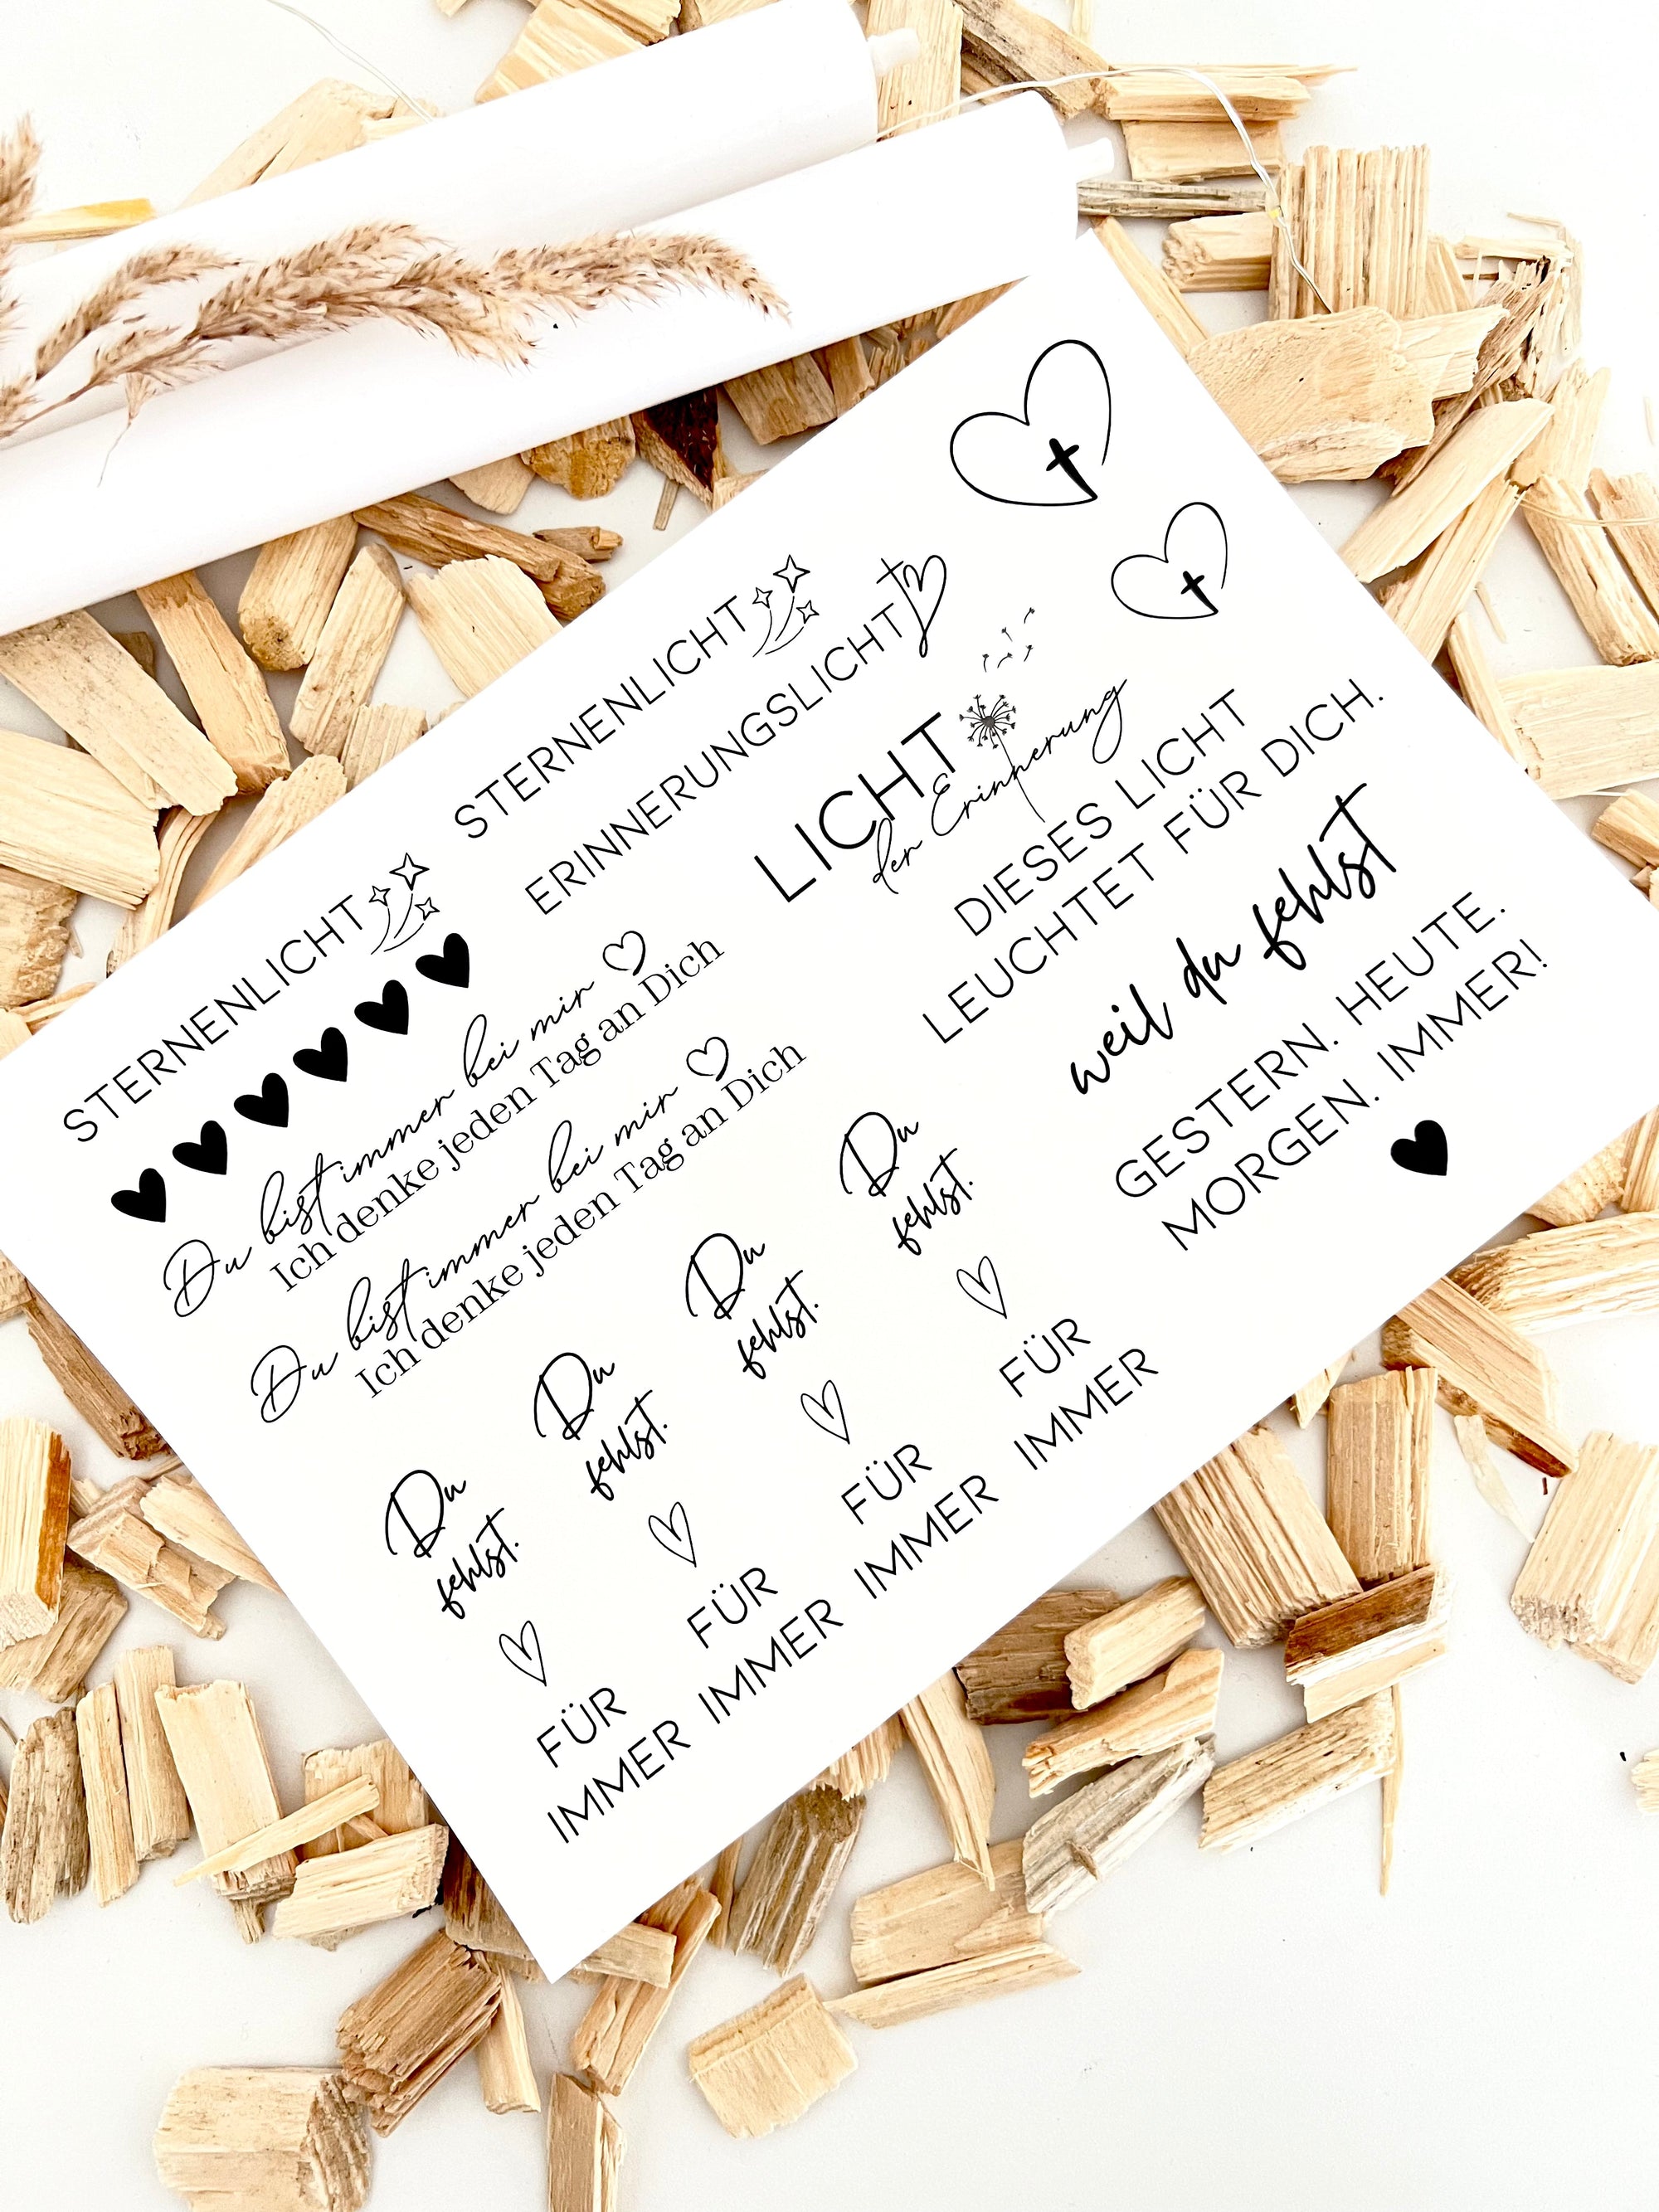 STERNENLICHT
STERNENLICHT
ERINNERUNGSLICHT
Du bist immer bei mir
Ich denke jeden Tag an Dich
Du bist immer bei mir
Ich denke jeden Tag an Dich
LICHT
der Erinnerung
DIESES LICHT
LEUCHTET FÜR DICH.
weil du fehlst
GESTERN. HEUTE.
MORGEN. IMMER!
Du
fehlst.
FÜR
IMMER
Du
fehlst.
FÜR
IMMER
Du
fehlst.
FÜR
IMMER
Du
fehlst.
FÜR
IMMER